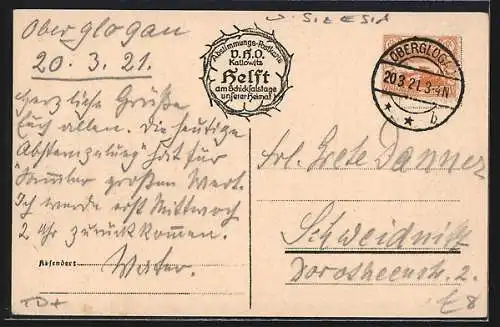 Oberglogau
20. 3. 21.
Herzliche Grüße
Euch allen. Die heutige
Abstempelung hat für
Sammler großen Wert.
Ich werde erst Mittwoch
2 Uhr zurückkommen.
Absender:
Vater.
Abstimmungs-Postkarte
V.H.O.
Kattowitz
Helft
am Schicksalstage
unserer Heimat
1
U. SILESIA
OBERGLOGAU
20.3.21.3-4N
* * b
Frl. Grete Danner
Schweidnitz
Dorotheenstr. 2.
TD+
£8